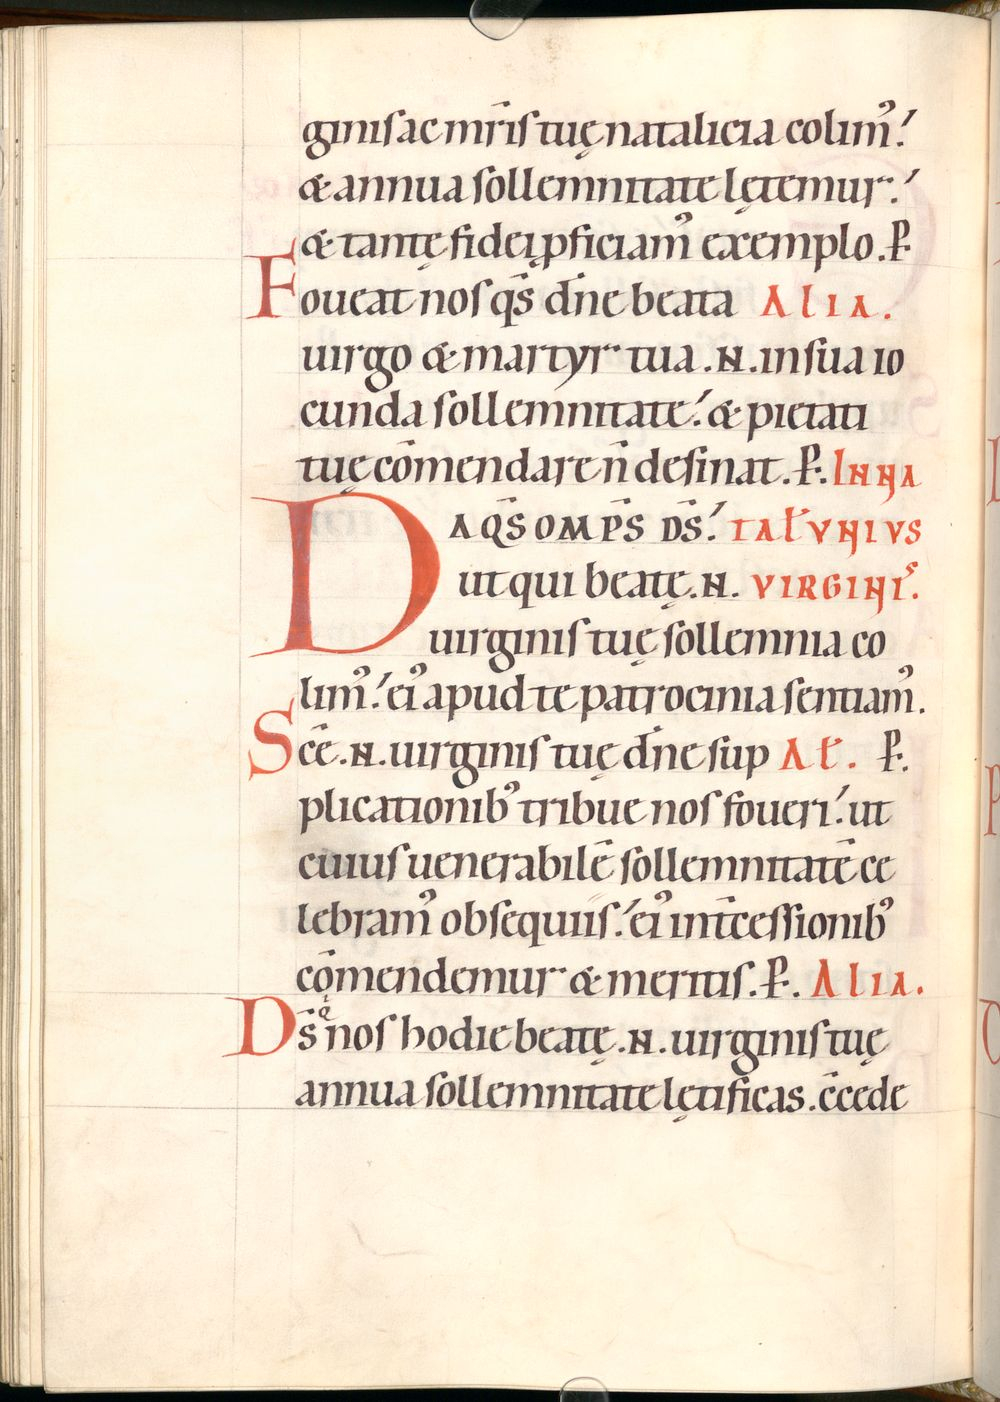 ginis ac mr̄is tuę natalicia colim᾽
& annua sollemnitate lętemur.
& tantę fidei ꝓficiam᾽ exemplo. P̵.
Foueat nos q̄s dn̄e beata ALIA.
uirgo & martyr tua .N. in sua io
cunda sollemnitate. & pietati
tuę cōmendare n̄ desinat. P̵. INNA
DA QS̄ OMP̄S DS̄. TAŁ VNIVS
ut qui beatę .N. VIRGINIS.
uirginis tuę sollemnia co
lim᾽. ei᾽ apud te patrocinia sentiam᾽.
Sc̄ę .N. uirginis tuę dn̄e sup AŁ. P̵.
plicationib᾽ tribue nos foueri. ut
cuius uenerabilē sollemnitatē ce
lebram᾽ obsequiis. ei᾽ int̄cessionib᾽
cōmendemur & meritis. P̵. ALIA.
Ds̄ q̊ nos hodie beatę .N. uirginis tuę
annua sollemnitate lętificas. c̄cede